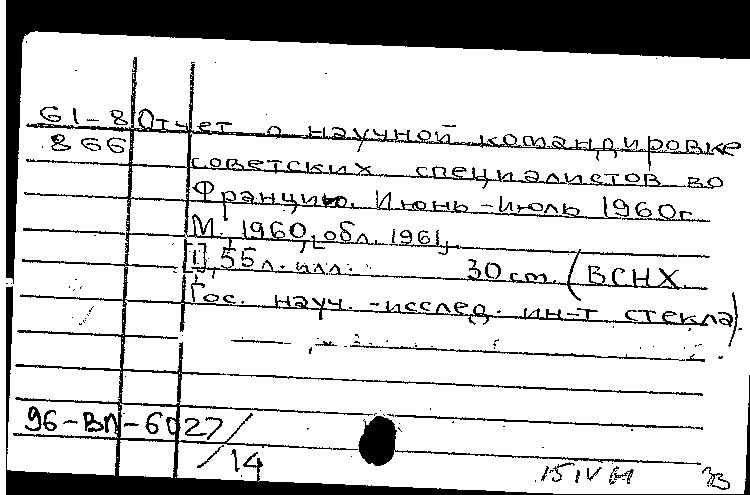 61-8 Отчет о научной командировке
866
советских специалистов во
Францию. Июнь-июль 1960г.
М., 1960, [обл. 1961].
[1], 55 л. илл. 30 см. (ВСНХ
Гос. науч.-исслед. ин-т стекла).
96-ВП-6027/
/14
15 IV 61